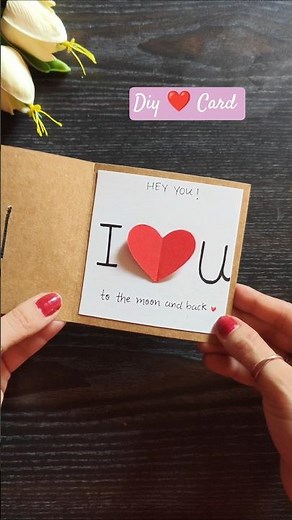 Diy ❤️ Card
HEY YOU!
I ❤ U
to the moon and back ♥